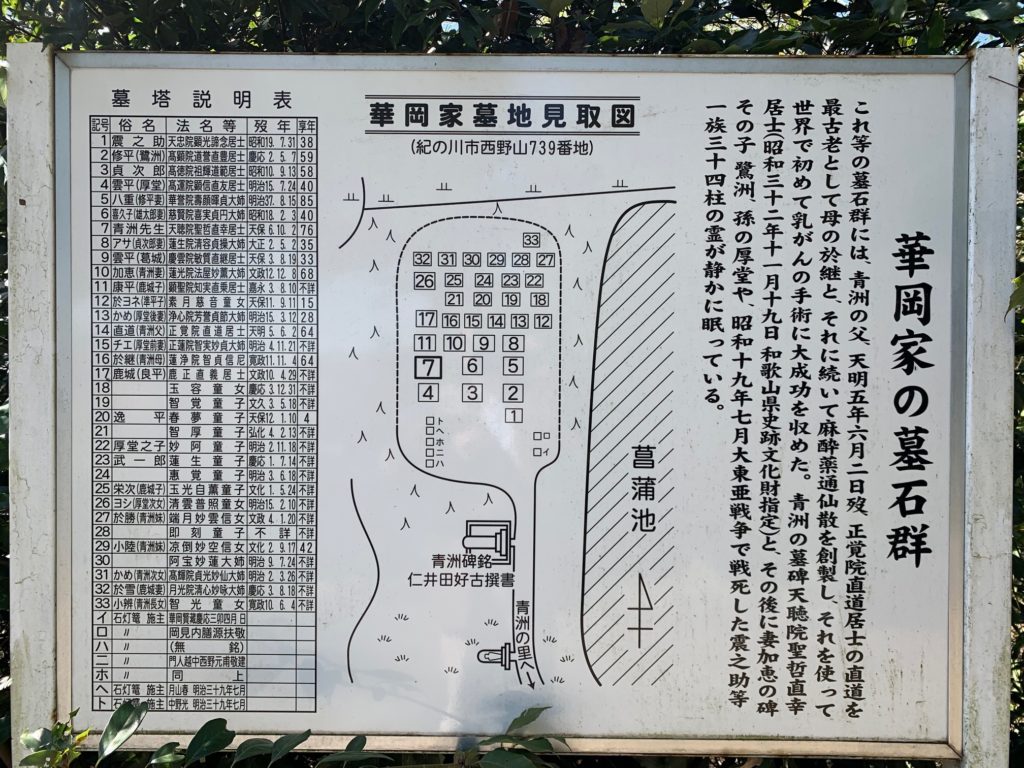 華岡家の墓石群
これ等の墓石群には、青洲の父、天明五年六月二日歿、正覚院直道居士の直道を
最古老として母の於継と、それに続いて麻酔薬通仙散を創製し、それを使って
世界で初めて乳がんの手術に大成功を収めた。青洲の墓碑天聴院聖哲直幸
居士(昭和三十二年十一月十九日 和歌山県史跡文化財指定)と、その後に妻加恵の碑
その子 鷺洲、孫の厚堂や、昭和十九年七月大東亜戦争で戦死した震之助等
一族三十四柱の霊が静かに眠っている。
華岡家墓地見取図
(紀の川市西野山739番地)
33
32 31 30 29 28 27
26 25 24 23 22
21 20 19 18
17 16 15 14 13 12
11 10 9 8
7 6 5
4 3 2
1
ト
ヘ
ホ
ニ
ハ
ロ
イ
菖蒲池
青洲碑銘
仁井田好古撰書
青洲の里へ
墓塔説明表
記号 俗名 法名等 歿年 享年
1 震之助 天忠院顕光諦念居士 昭和19.7.31 38
2 修平(鷺洲) 高顕院道誉直豊居士 慶応2.5.7 59
3 貞次郎 高徳院祖輝道範居士 昭和10.9.13 58
4 雲平(厚堂) 高運院顕信直友居士 明治15.7.24 40
5 八重(修平妻) 華誉院壽顔暉貞大姉 明治37.8.15 85
6 喜久子(雄太郎妻) 慈賢院喜実貞円大姉 昭和18.2.3 40
7 青洲先生 天聴院聖哲直幸居士 天保6.10.2 76
8 アサ(貞次郎妻) 蓮生院清容貞操大姉 大正2.5.2 35
9 雲平(葛城) 慶雲院敏質直継居士 天保3.8.19 33
10 加恵(青洲妻) 蓮光院法屋妙薫大姉 文政12.12.8 68
11 康平(鹿城子) 顕聖院知実直乗居士 嘉永3.8.10 不詳
12 於ヨネ(準平子) 素月慈音童女 天保11.9.11 15
13 かめ(厚堂後妻) 浄心院芳誉貞節大姉 明治15.3.12 28
14 直道(青洲父) 正覚院直道居士 天明5.6.2 64
15 チエ(厚堂前妻) 正蓮院智実妙貞大姉 明治4.11.21 不詳
16 於継(青洲母) 蓮浄院智貞信尼 寛政11.11.4 64
17 鹿城(良平) 鹿正直義居士 文政10.4.29 不詳
18 玉容童女 慶応3.12.31 不詳
19 智覚童子 文久3.5.18 不詳
20 逸平 春夢童子 天保12.1.10 4
21 智厚童子 弘化4.2.13 不詳
22 厚堂之子 妙阿童子 明治2.11.18 不詳
23 武一郎 蓮生童子 慶応1.7.14 不詳
24 恵覚童子 明治3.6.18 不詳
25 栄次(鹿城子) 玉光自薫童子 文化1.5.24 不詳
26 ヨシ(厚堂次女) 清雲普照童女 明治15.2.10 不詳
27 於勝(青洲妹) 端月妙雲信女 文政4.1.20 不詳
28 即刻童子 不詳 不詳
29 小陸(青洲妹) 凉倒妙空信女 文化2.9.17 42
30 阿宝妙蓮大姉 明治9.7.24 不詳
31 かめ(青洲次女) 高輝院貞光妙仙大姉 明治2.3.26 不詳
32 於雪(鹿城妻) 月光院清心妙咏大姉 明治2.3.18 不詳
33 小辨(青洲長女) 智光童女 寛政10.6.4 不詳
イ 石灯竜 施主 華岡質蔵慶応三卯四月日
ロ 〃 岡見内膳源扶敬
ハ 〃 (無銘)
ニ 〃 門人越中西野元甫敬建
ホ 〃 同上
ヘ 石灯竜 施主 月山春 明治三十九年七月
ト 石灯竜 施主 中野光 明治三十九年七月